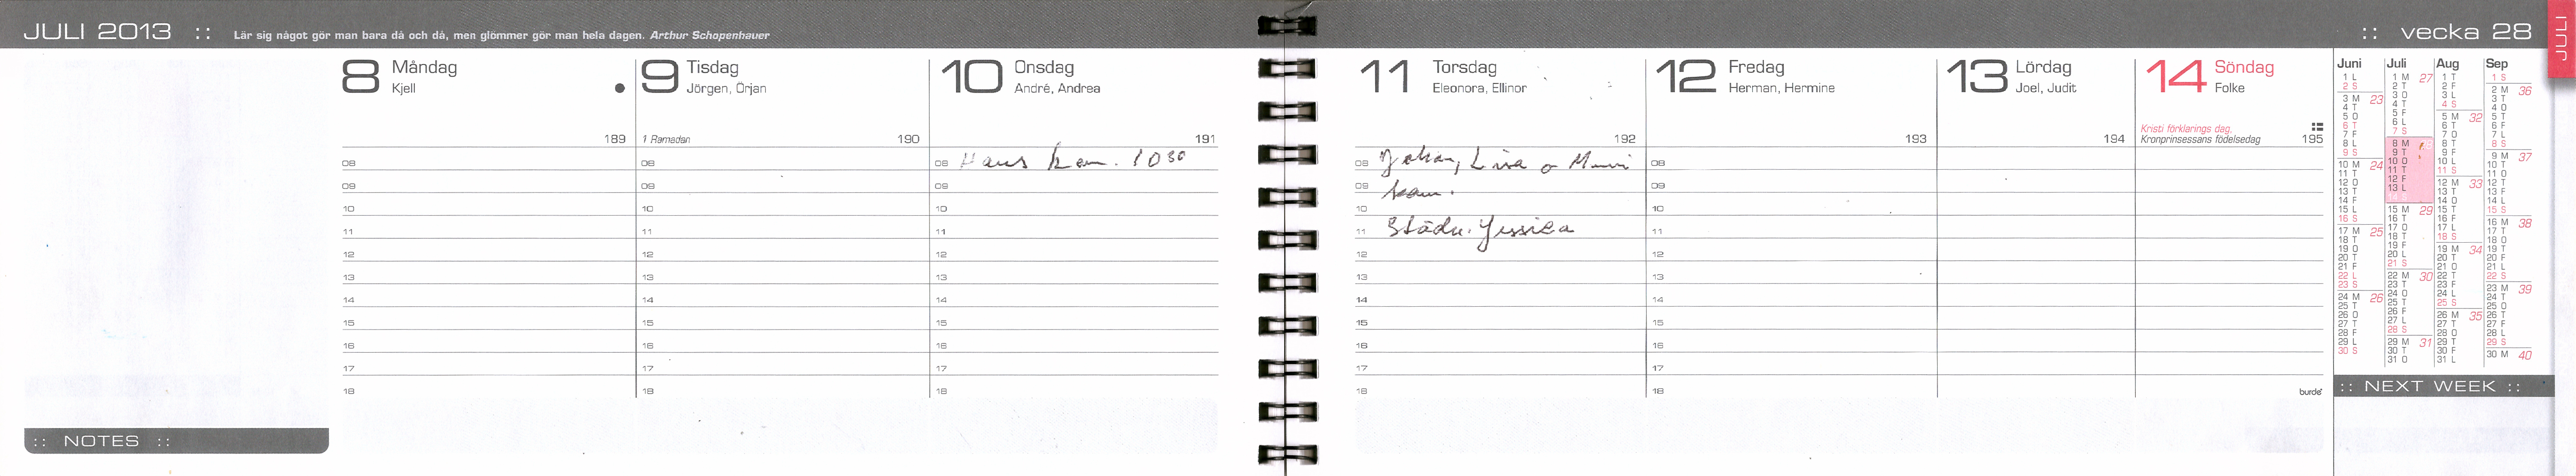 JULI 2013 :: Lär sig något gör man bara då och då, men glömmer gör man hela dagen. Arthur Schopenhauer
:: vecka 28
JULI
8 Måndag
Kjell
189
08
09
10
11
12
13
14
15
16
17
18
9 Tisdag
Jörgen, Örjan
1 Ramadan 190
08
09
10
11
12
13
14
15
16
17
18
10 Onsdag
André, Andrea
191
08 Hans kom. 1030
09
10
11
12
13
14
15
16
17
18
11 Torsdag
Eleonora, Ellinor
192
08 Johan, Lisa o
09 kom.
10
11 Städn. Jessica
12
13
14
15
16
17
18
12 Fredag
Herman, Hermine
193
08
09
10
11
12
13
14
15
16
17
18
13 Lördag
Joel, Judit
194
14 Söndag
Folke
Kristi förklarings dag,
Kronprinsessans födelsedag 195
burde
Juni
1 L
2 S
3 M 23
4 T
5 O
6 T
7 F
8 L
9 S
10 M 24
11 T
12 O
13 T
14 F
15 L
16 S
17 M 25
18 T
19 O
20 T
21 F
22 L
23 S
24 M 26
25 T
26 O
27 T
28 F
29 L
30 S
Juli
1 M 27
2 T
3 O
4 T
5 F
6 L
7 S
8 M
9 T
10 O
11 T
12 F
13 L
14 S
15 M 29
16 T
17 O
18 T
19 F
20 L
21 S
22 M 30
23 T
24 O
25 T
26 F
27 L
28 S
29 M 31
30 T
31 O
Aug
1 T
2 F
3 L
4 S
5 M 32
6 T
7 O
8 T
9 F
10 L
11 S
12 M 33
13 T
14 O
15 T
16 F
17 L
18 S
19 M 34
20 T
21 O
22 T
23 F
24 L
25 S
26 M 35
27 T
28 O
29 T
30 F
31 L
Sep
1 S
2 M 36
3 T
4 O
5 T
6 F
7 L
8 S
9 M 37
10 T
11 O
12 T
13 F
14 L
15 S
16 M 38
17 T
18 O
19 T
20 F
21 L
22 S
23 M 39
24 T
25 O
26 T
27 F
28 L
29 S
30 M 40
:: NOTES ::
:: NEXT WEEK ::